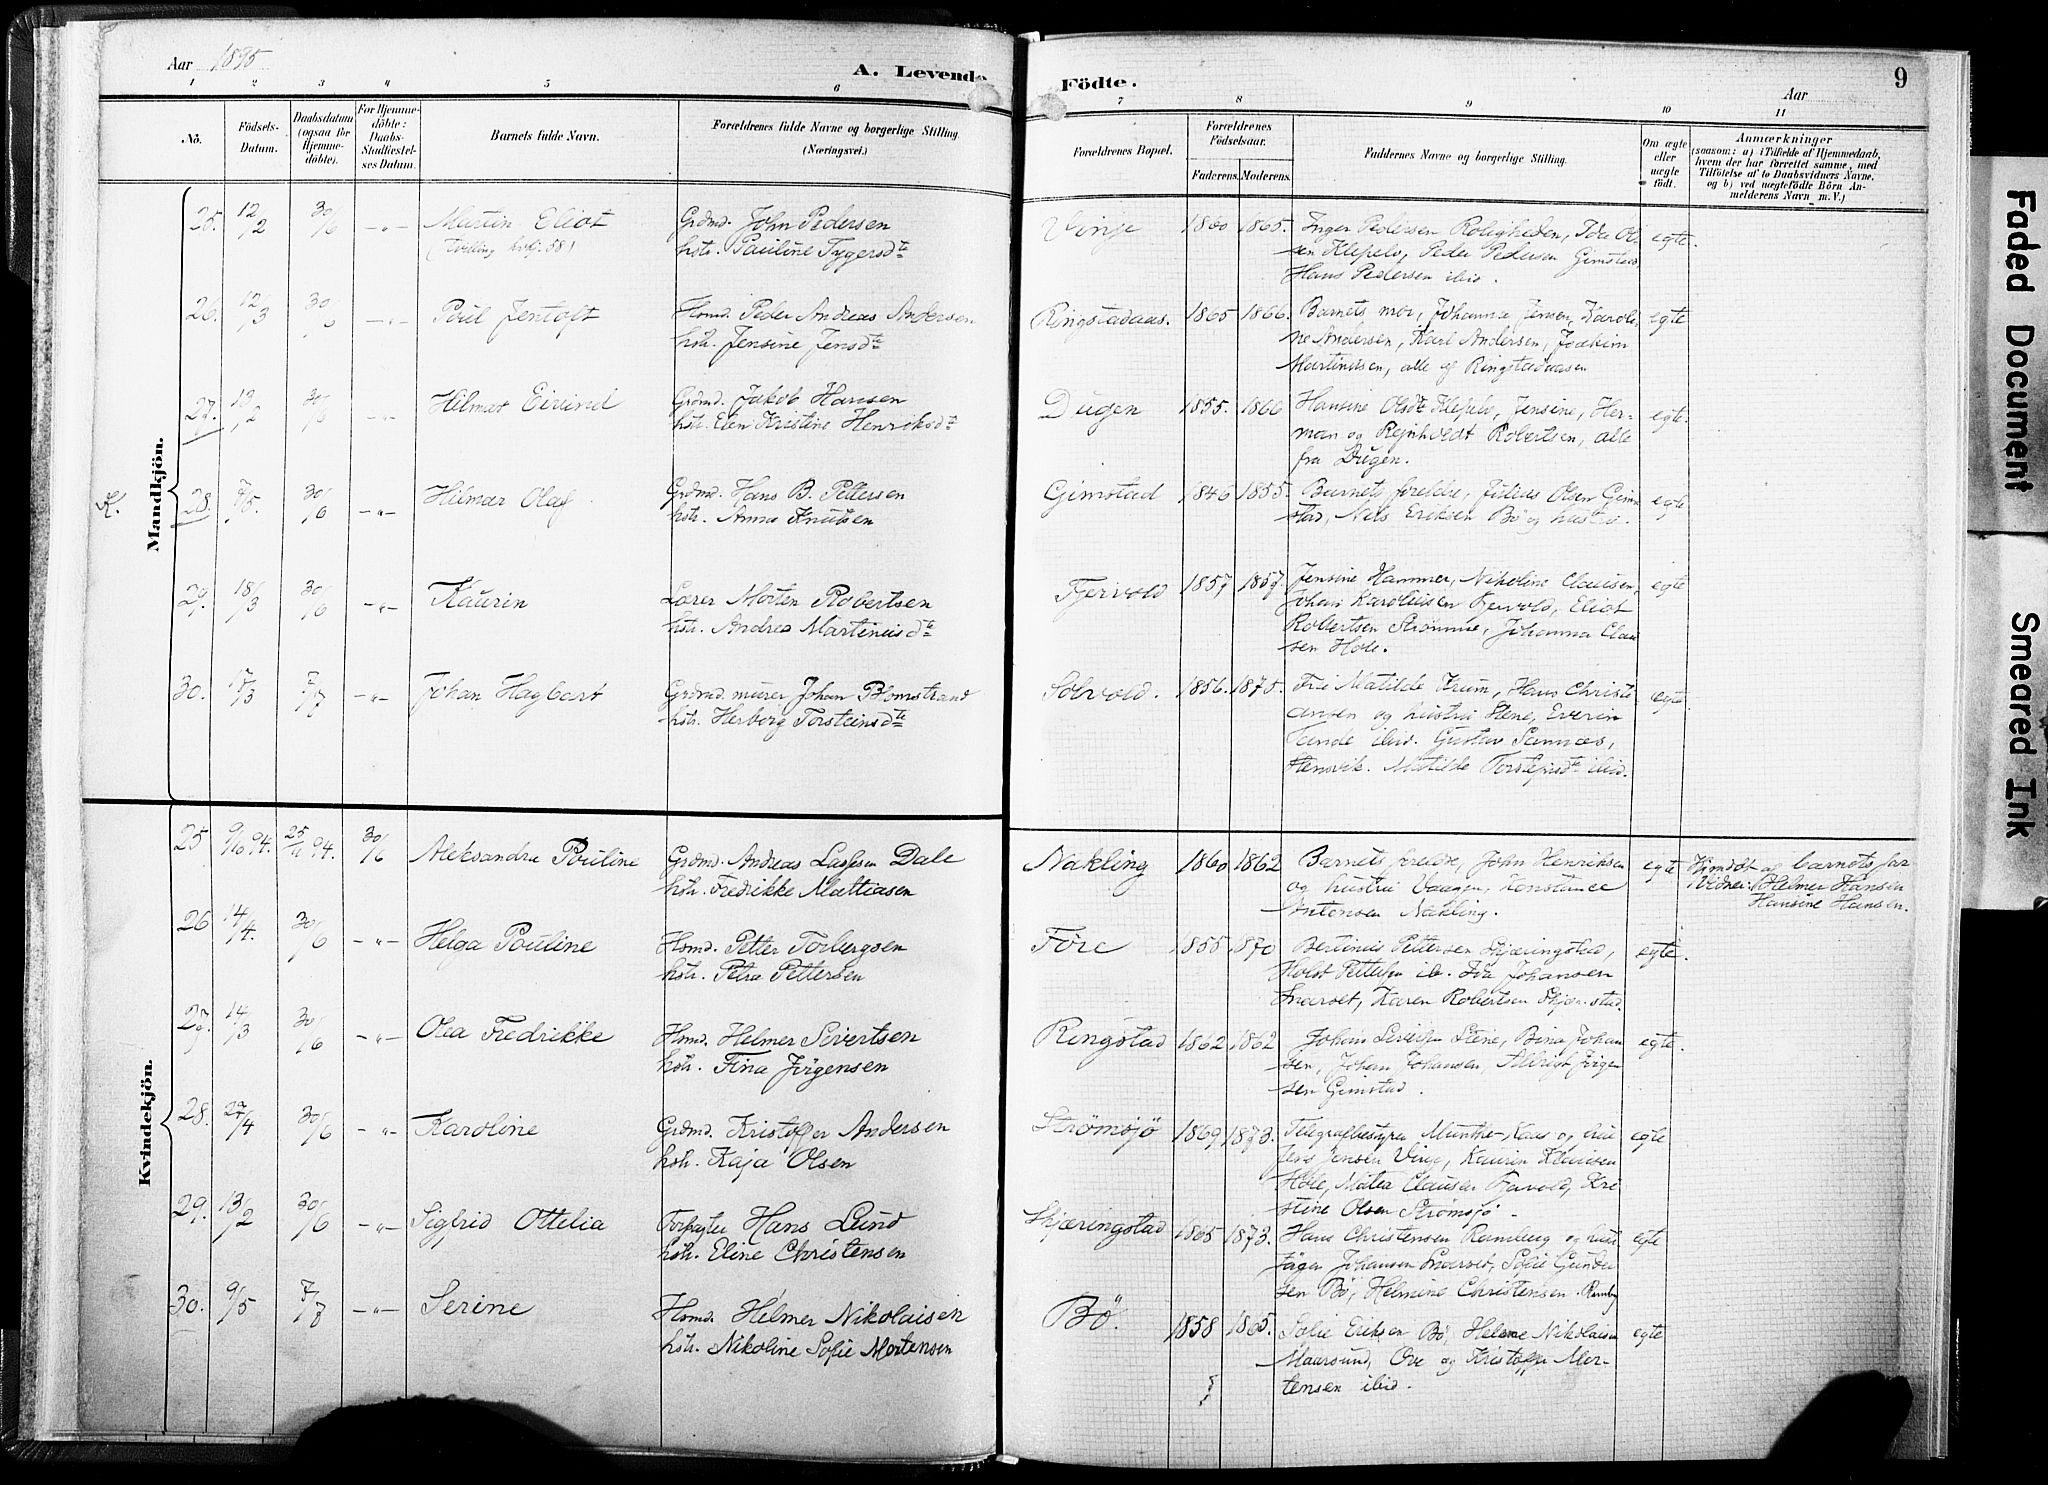 Aar 1895
A. Levende
Födte.
Aar
9
1 2 3 4 5 6 7 8 9 10 11
No.
Födsels-
Datum.
Daabsdatum
(ogsaa för
Hjemme-
döbte).
For Hjemme-
döbte:
Daabs-
Stadfæstel-
ses Datum.
Barnets fulde Navn.
Forældrenes fulde Navne og borgerlige Stilling
(Næringsvei.)
Forældrenes Bopæl.
Forældrenes
Födselsaar.
Faderens. Moderens.
Faddernes Navne og borgerlige Stilling.
Om ægte
eller
uægte
födt.
Anmærkninger
(saasom: a) i Tilfælde af Hjemmedaab,
hvem der har forrettet samme, med
Tilföielse af to Daabsvidners Navne,
og b) ved uægtefödte Börn An-
melderens Navn m. V.)
Mandkjön.
25. 12/2 30/6 -„- Martin Eliot
(Tvilling kvk. 58)
Grdmd. John Pedersen
hstr. Pauline Tygersdte
Vinje 1860 1865. Inger Pedersen Roligheden, Ida Ol-
sen Klepelv, Peder Pedersen Gimstad,
Hans Pedersen ibid.
egte.
26. 12/3 30/6 -„- Poul Jentoft
Hsmd. Peder Andreas Andersen
hstr. Jensine Jensdte
Ringstadaas. 1865 1866. Barnets mor, Johanna Jensen, Karoli-
ne Andersen, Karl Andersen, Joakim
Martinusen, alle af Ringstadaasen
egte
27. 13/2 30/6 -„- Hilmar Eivind
Grdmd. Jakob Hansen
hstr. Elen Kristine Henriksdte
Dugen 1855. 1866 Hansine Olsdt Klepelv, Jensine, Her-
man og Reinholdt Robertsen, alle
fra Dugen.
egte.
K.
28. 7/5. 30/6 -„- Hilmar Olaf
Grdmd. Hans B. Pettersen
hstr. Anna Knutsen
Gimstad 1846 1855. Barnets foreldre, Julius Olsen Gim-
stad, Nels Eriksen Bö og hustru.
egte
29. 18/3 30/6 -„- Kaurin
Lærer Morten Robertsen
hstr. Andrea Martinusdte
Fjervold 1857 1857 Jensine Hammer, Nikoline Clausen,
Johan Karoliusen Fjervold, Eliot
Robertsen Strömme, Johanna Clau-
sen Hole.
egte
30. 17/3 7/7 -„- Johan Hagbart
Grdmd. murer Johan Blomstrand
hstr. Herborg Torsteinsdte
Solvold. 1856. 1875. Fru Matilde Krum, Hans Christi-
ansen og hustru Stene, Everin
Tande ibid. Gustav Sannæs,
Stensvik. Matilde Torsteinsdte ibid.
egte
Kvindekjön.
25 9/10 94. 25/11 94. 30/6 Aleksandra Pouline
Grdmd. Andreas Lassesen Dale
hstr. Fredrikke Mattiasen
Nakling 1860 1862 Barnets foreldre, John Henriksen
og hustru Vaagen, Konstance
Antonsen Nakling.
egte Hjmdöbt af barnets far
Vidner: Helmer Hansen
Hansine Hansen.
26 14/4. 30/6 -„- Helga Pouline
Hsmd. Petter Torbergsen
hstr. Petra Pettersen
Före 1855 1870 Bertinus Pettersen Skjæringstad,
Holst Pettersen ib. Ida Johansen
Snarset, Karen Robertsen Skjær.stad.
egte.
27 14/3 30/6 -„- Olea Fredrikke
Hsmd. Helmer Sivertsen
hstr. Fina Jörgensen
Ringstad 1862 1862 Johan Sivertsen Stene, Bina Johan-
sen, Johan Johansen, Albrigt Jörgen-
sen Gimstad.
egte.
28. 27/4 30/6 -„- Karoline
Grdmd. Kristoffer Andersen
hstr. Kaja Olsen
Strömsjö 1869 1873. Telegrafbestyrer Munthe-Kaas og frue
Jens Jensen Vinje, Kaurin Klausen
Hole, Matea Clausen Fjervold, Kri-
stine Olsen Strömsjö.
egte
29. 13/2 30/6 -„- Sigfrid Ottelia
Forpagter Hans Lund
hstr. Eline Christensen
Skjæringstad 1865 1873. Hans Christensen Ramberg og hust.
Jäger Johansen Snarset, Sofie Gunder-
sen Bö, Helmine Christensen Ramb.
egte
30. 9/5 7/7 -„- Serine
Hsmd. Helmer Nikolaisen
hstr. Nikoline Sofie Mortensen
Bö. 1858 1865. Sofie Eriksen Bö, Helene Nikolaisen
Maarsund, Ove og Kristoffer Mor-
tensen ibid.
egte
Faded Document
Smeared Ink